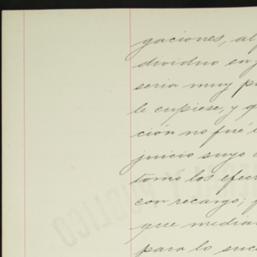 gaciones, al
dividuo en
seria muy p
le cupiese, y q
ción no fué
juicio suyo
tomo los efec
con recargo;
que media
para lo suce